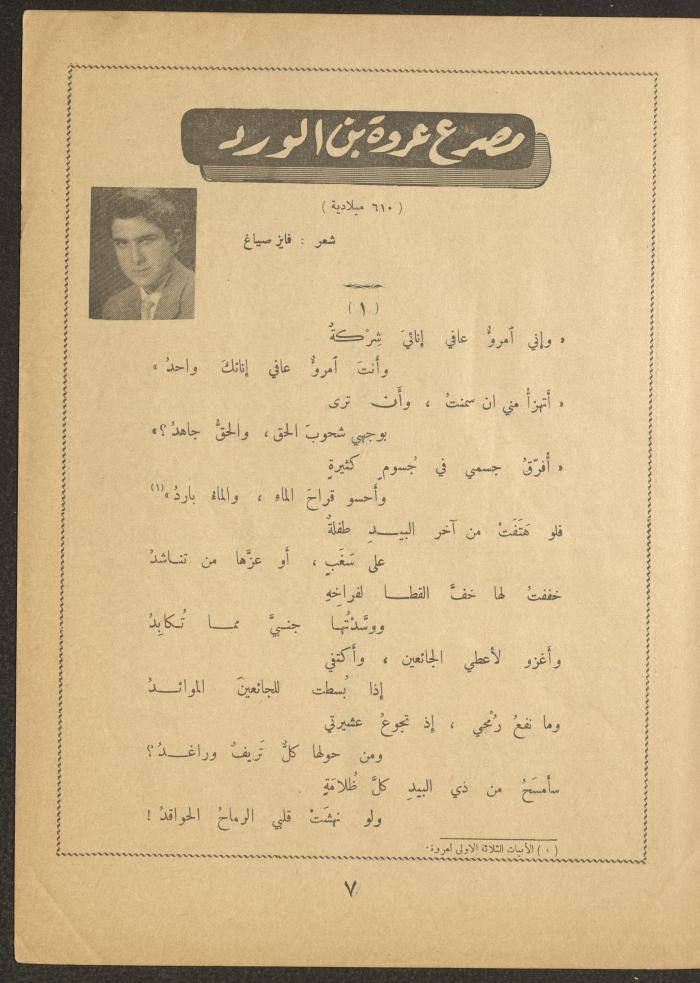 مصرع عروة بن الورد
( ٦١٠ ميلادية )
شعر : فايز صياغ
( ١ )
« وإني ٱمروٌ عافي إنائيَ شِرْكةٌ
وأنتَ ٱمروٌ عافي إنائكَ واحدُ »
« أتهزأُ مني ان سمنتُ ، وأَن ترى
بوجهي شحوبَ الحق ، والحقُّ جاهدُ ؟»
« أُفرّقُ جسمي في جُسومٍ كثيرةٍ
وأَحسو قراحَ الماءِ ، والماءُ باردُ»(١)
فلو هَتَفَتْ من آخر البيـــدِ طفلةٌ
على سَغَبٍ ، أو عزَّها من تنـاشدُ
خففتُ لها خفَّ القطـــا لفراخِهِ
ووسَّدْتُهـا جنـبيَّ ممـــا تُـكابِدُ
وأغزو لأعطي الجائعين ، وأكتفي
إذا بُسطت للجائعينَ الموائـــدُ
وما نفعُ رُمْحي ، إذ تجوعُ عشيرتي
ومن حولها كلُّ تَريفٌ وراغـــدُ ؟
سأمسَحُ من ذي البيدِ كلَّ ظُلامَةٍ
ولو نهشَتْ قلبي الرماحُ الحواقدُ !
( ١ ) الأبيات الثلاثة الاولى لعروة.
٧